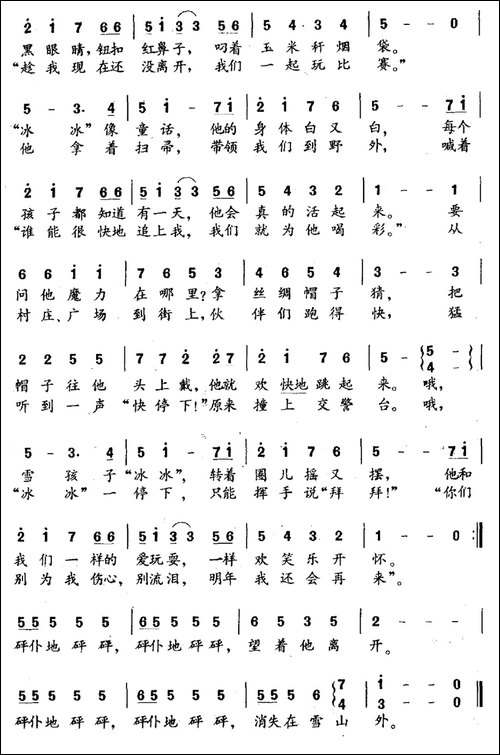 2̇ 1̇ 7 66 | 51̇ 3̇3 56 | 5 4· 3 4 | 5 - 0
黑眼睛，钮扣 红鼻子， 叼着 玉米秆烟 袋。
“趁我现在还 没离开，我们 一起玩比 赛。”
5 - 3· 4 | 5 1̇ - 71̇ | 2̇ 1̇ 7 6 | 5 - - 71̇
“冰 冰”像 童话， 他的 身体白又 白， 每个
他 拿着 扫帚， 带领 我们到野 外， 喊着
2̇ 1̇ 7 66 | 51̇ 3̇3 56 | 5 4 3 2 | 1 - - 1
孩子都知道 有一天， 他会 真的活起 来。 要
“谁能很快地 追上我，我们 就为他喝 彩。” 从
6 6 1̇ 1̇ | 7 6 5 3 | 4 6 5 4 | 3 - - 3
问他魔力 在哪里？拿 丝绸帽子 猜， 把
村庄、广场 到街上，伙 伴们跑得 快， 猛
2 2 5 5 | 7 7 2̇ 2̇7 | 2̇ 1̇ 7 6 | 5 - - {5 4 -
帽子往他 头上戴，他就 欢快地跳起 来。 哦，
听到一声 “快停下！”原来 撞上交警 台。哦，
5 - 3· 4 | 5 1̇ - 71̇ | 2̇ 1̇ 7 6 | 5 - - 71̇
雪 孩子 “冰冰”， 转着 圈儿摇又 摆， 他和
“冰 冰”一 停下， 只能 挥手说“拜 拜！” “你们
2̇ 1̇ 7 66 | 51̇ 3̇3 56 | 5 4 3 2 | 1 - - 0 :‖
我们一样的 爱玩耍， 一样 欢笑乐开 怀。
别为我伤心， 别流泪， 明年 我还会再 来”。
55 55 5 5 | 65 55 5 5 | 6 5 3 5 | 2 - - -
砰仆地砰砰， 砰仆地砰砰， 望着他离 开。
55 55 5 5 | 65 55 5 5 | 55 5 5 6 {7 4 | 1̇ - - 0 3 - - 0 ‖
砰仆地砰砰， 砰仆地砰砰， 消失在雪山 外。